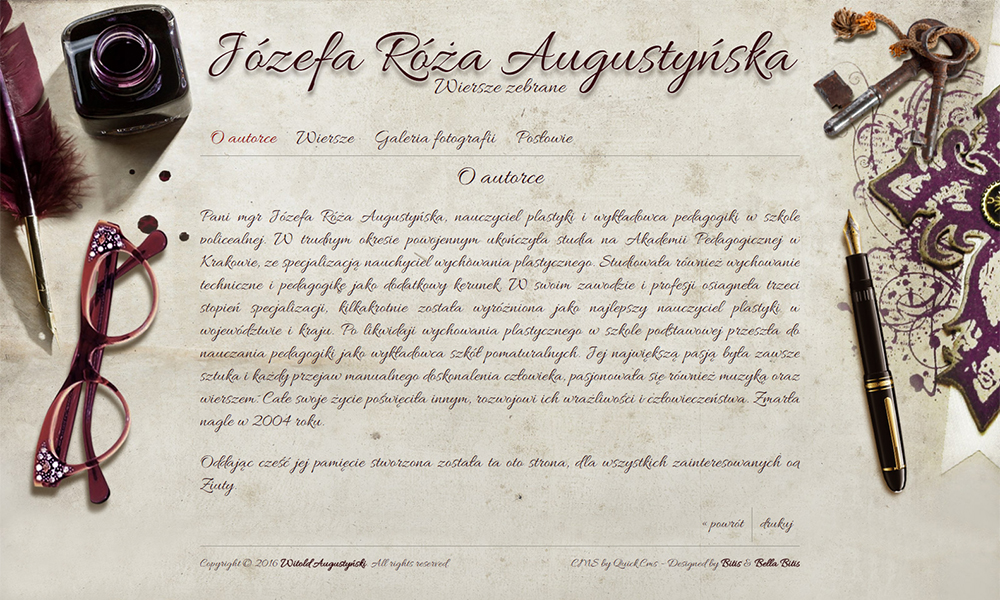 Józefa Róża Augustyńska
Wiersze zebrane
O autorce Wiersze Galeria fotografii Posłowie
O autorce
Pani mgr Józefa Róża Augustyńska, nauczyciel plastyki i wykładowca pedagogiki w szkole
policealnej. W trudnym okresie powojennym ukończyła studia na Akademii Pedagogicznej w
Krakowie, ze specjalizacją nauchyciel wychowania plastycznego. Studiowała również wychowanie
techniczne i pedagogikę jako dodatkowy kerunek. W swoim zawodzie i profesji osiągnęła trzeci
stopień specjalizacji, kilkakrotnie została wyróżniona jako najlepszy nauczyciel plastyki w
województwie i kraju. Po likwidaji wychowania plastycznego w szkole podstawowej przeszła do
nauczania pedagogiki jako wykładowca szkół pomaturalnych. Jej największą pasją była zawsze
sztuka i każdy przejaw manualnego doskonalenia człowieka, pasjonowała się również muzyką oraz
wierszem. Całe swoje życie poświęciła innym, rozwojowi ich wrażliwości i człowieczeństwa. Zmarła
nagle w 2004 roku.
Oddając cześć jej pamięcie stworzona została ta oto strona, dla wszystkich zainteresowanych od
Ziuty.
« powrót drukuj
Copyright © 2016 Witold Augustyński. All rights reserved CMS by Quick.Cms - Designed by Bitis & Bella Bitis